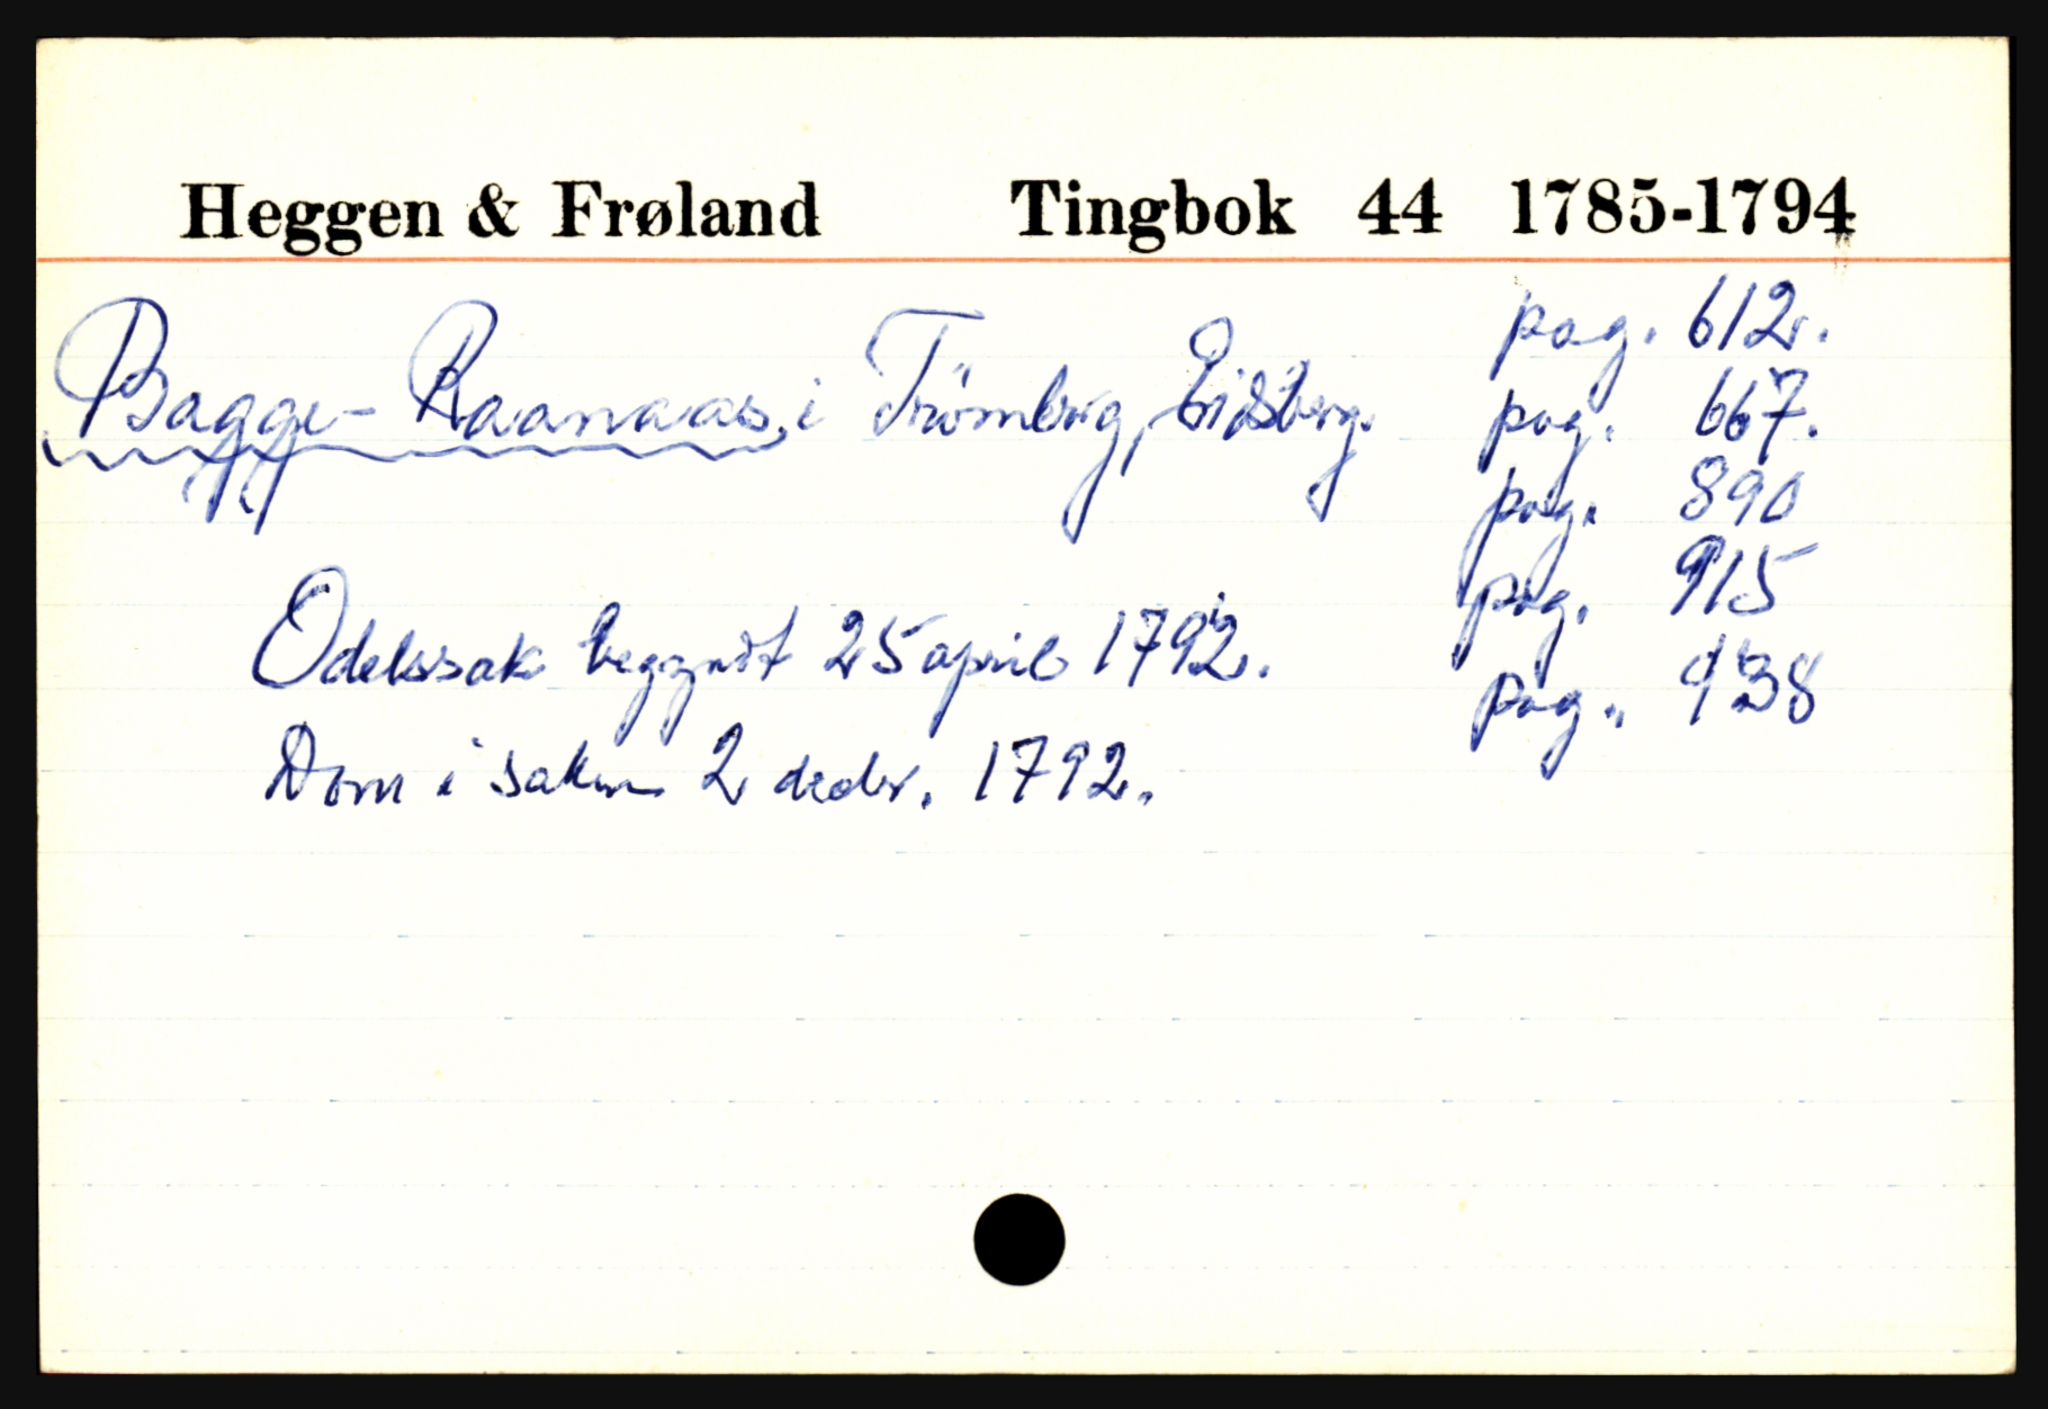 Heggen & Frøland Tingbok 44 1785-1794
Bagge-Raanaas, i Trömborg, Eidsberg.
pag. 612.
pag. 667.
pag. 890
pag. 915
pag. 938
Odelssak begyndt 25 april 1792.
Dom i saken 2 decbr. 1792.